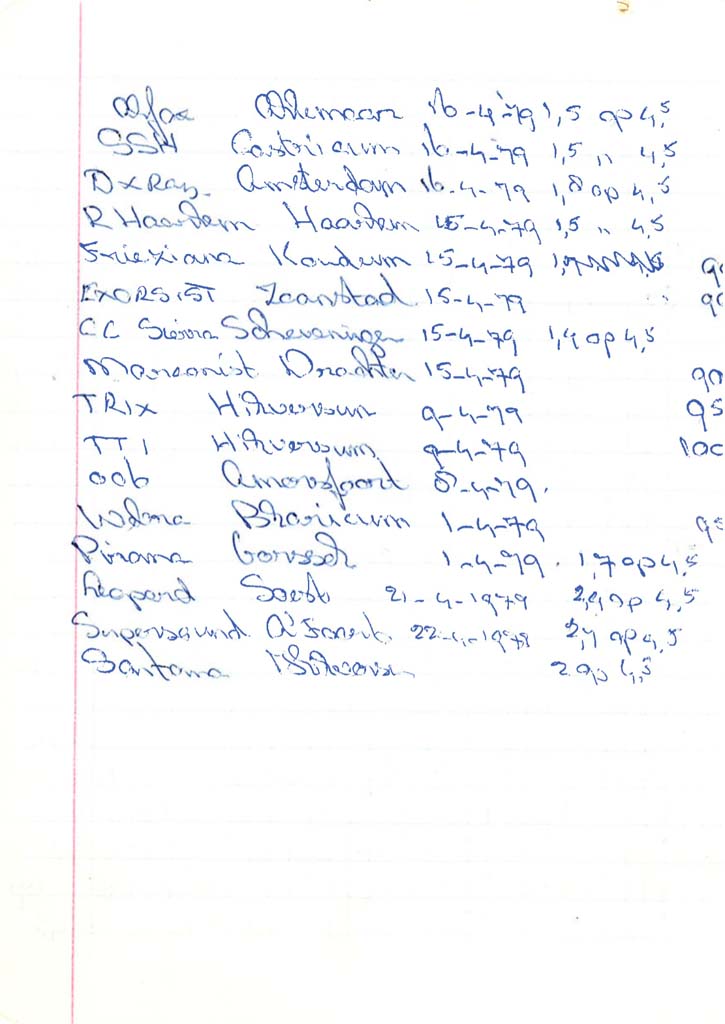 Alkmaar 16-4-'79 1,5 op 4,5
SSH Castricum 16-4-'79 1,5 ,, 4,5
DX Ray Amsterdam 16-4-79 1,8 op 4,5
R Haarlem Haarlem 15-4-79 1,5 ,, 4,5
15-4-79
EXORSIST Zaanstad 15-4-79
CC Sierra Scheveningen 15-4-79 1,4 op 4,5
Marconist Drachten 15-4-'79
TRIX Hilversum 9-4-79 95
TTI Hilversum 9-4-'79 100
Amersfoort 8-4-'79.
Wilma Blaricum 1-4-79
Pirana Gorssel 1-4-'79. 1,7 op 4,5
Leopard Soest 21-4-1979 op 4,5
Supersound A'foort 22-4-1979 2,4 op 4,5
Santana 2 op 4,5